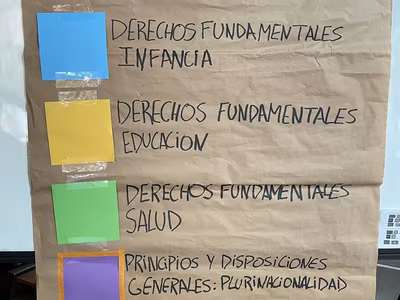 DERECHOS FUNDAMENTALES
INFANCIA
DERECHOS FUNDAMENTALES
EDUCACION
DERECHOS FUNDAMENTALES
SALUD
PRINCIPIOS Y DISPOSICIONES
GENERALES: PLURINACIONALIDAD